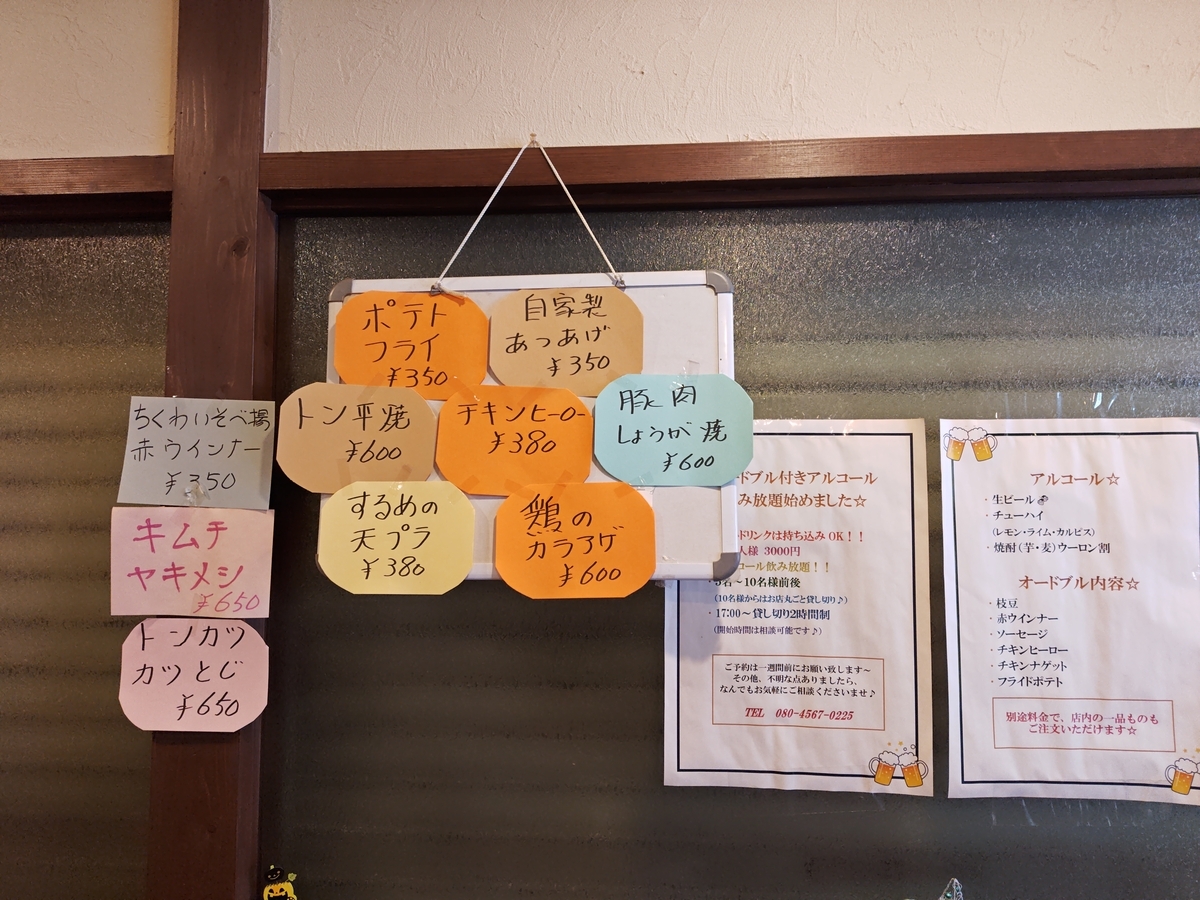 ポテト
フライ
¥350
自家製
あつあげ
¥350
トン平焼
¥600
チキンヒーロー
¥380
豚肉
しょうが焼
¥600
するめの
天プラ
¥380
鶏の
カラアゲ
¥600
ちくわいそべ揚
赤ウインナー
¥350
キムチ
ヤキメシ
¥650
トンカツ
カツとじ
¥650
ドブル付きアルコール
み放題始めました☆
ドリンクは持ち込みOK！！
人様 3000円
コール飲み放題！！
・5名〜10名様前後
(10名様からはお店丸ごと貸し切り♪)
・17:00〜貸し切り2時間制
(開始時間は相談可能です♪)
ご予約は一週間前にお願い致します〜
その他、不明な点ありましたら、
なんでもお気軽にご相談くださいませ♪
TEL 080-4567-0225
アルコール☆
・生ビール
・チューハイ
(レモン・ライム・カルピス)
・焼酎(芋・麦)ウーロン割
オードブル内容☆
・枝豆
・赤ウインナー
・ソーセージ
・チキンヒーロー
・チキンナゲット
・フライドポテト
別途料金で、店内の一品ものも
ご注文いただけます☆